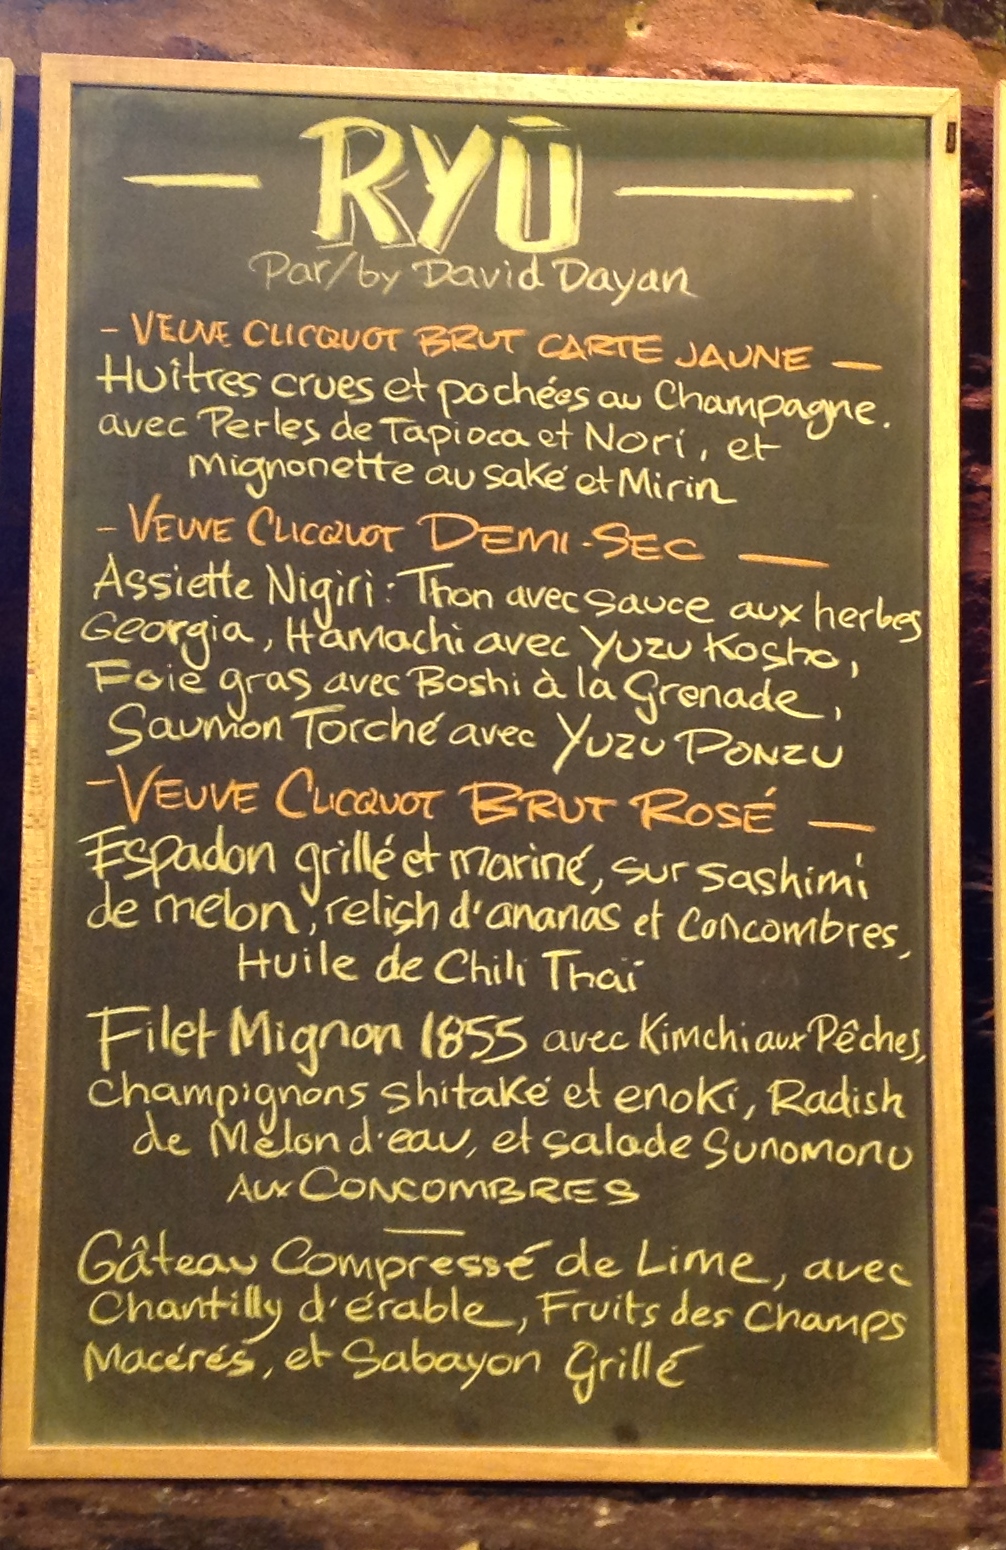 — RYŪ —
Par/by David Dayan
- VEUVE CLICQUOT BRUT CARTE JAUNE —
Huîtres crues et pochées au Champagne.
avec Perles de Tapioca et Nori, et
mignonette au saké et Mirin
- VEUVE CLICQUOT DEMI-SEC —
Assiette Nigiri: Thon avec sauce aux herbes
Georgia, Hamachi avec Yuzu Kosho,
Foie gras avec Boshi à la Grenade,
Saumon Torché avec Yuzu PONZU
- VEUVE CLICQUOT BRUT ROSÉ —
Espadon grillé et mariné, sur sashimi
de melon, relish d'ananas et Concombres,
Huile de Chili Thaï
Filet Mignon 1855 avec Kimchi aux Pêches,
champignons shitaké et enoki, Radish
de Melon d'eau, et salade Sunomono
AUX CONCOMBRES
—
Gâteau Compressé de Lime, avec
Chantilly d'érable, Fruits des Champs
Macérés, et Sabayon Grillé